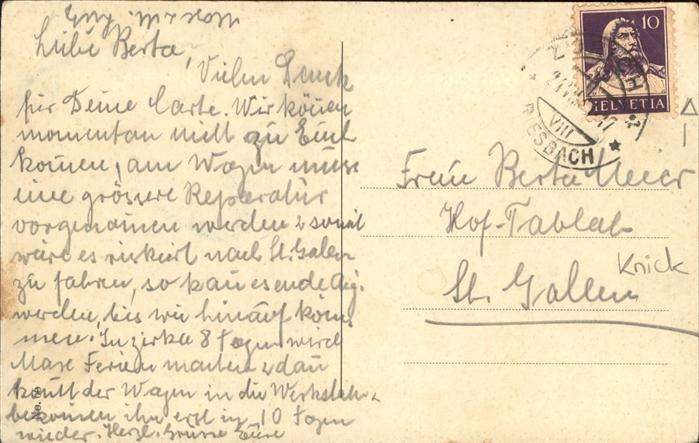 Liebe Berta,
Vielen Dank
für Deine Carte. Wir können
momentan nicht zu Euch
kommen, am Wagen muss
eine grössere Reparatur
vorgenommen werden & somit
wäre es riskiert nach St. Gallen
zu fahren, so kann es ende Aug.
werden, bis wir hinauf kom-
men. In zirka 8 Tagen wird
Max Ferien machen & dan
komt der Wagen in die Werkstatt &
bekommen ihn erst in 10 Tagen
wieder. Herzl. Grüsse Eure
No. 
10
HELVETIA
VIII
RIESBACH
Frau Berta Meier
Hof-Tablat
St. Gallen
Knick